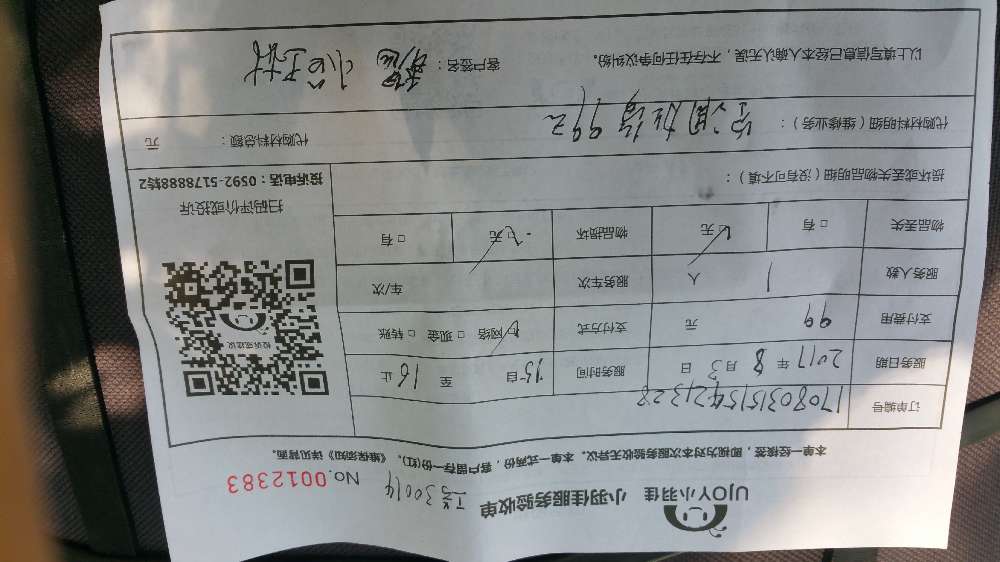 UJOY小羽佳 小羽佳服务验收单 工号30014 No.0012383
本单一经接签，即视为对本次服务验收无异议。本单一式两份，客户留存一份(红)。《维保须知》详见背面。
订单编号 17080315154421328
服务日期 2017年8月3日 服务时间 15自 至 16止
支付费用 99 元 支付方式 网络 □现金 □转账
服务人数 1 人 服务车次 车/次
物品丢失 □有 □无 物品损坏 □无 □有
投诉或建议
扫码评价或投诉
投诉电话：0592-5178888转2
损坏或丢失物品明细（没有可不填）：
代购材料明细（维修业务）： 99元
代购材料总额： 元
以上填写信息已经本人确认无误，不存在任何争议纠纷。 客户签名：